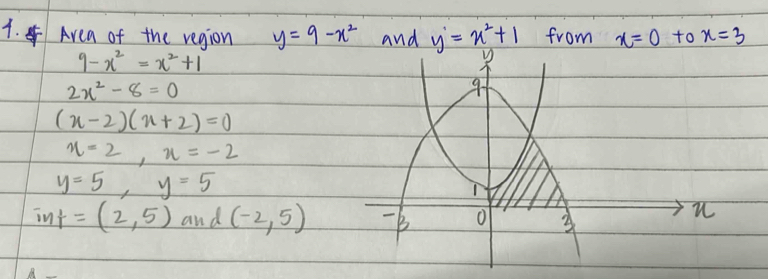 1. Area of the region y = 9 - x² and y = x² + 1 from x = 0 to x = 3
9 - x² = x² + 1
2x² - 8 = 0
(x - 2)(x + 2) = 0
x = 2 , x = -2
y = 5 , y = 5
int = (2, 5) and (-2, 5)
y
9
1
-3 0 3 x